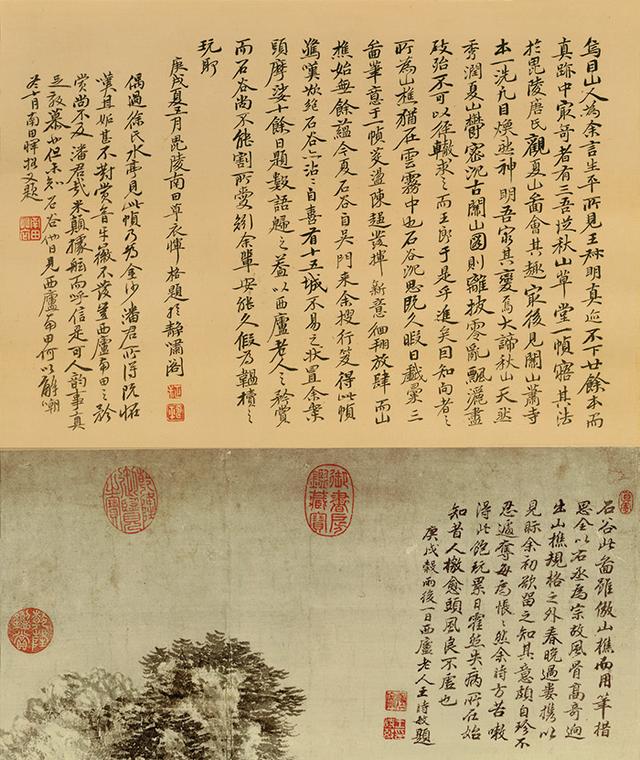 烏目山人為余言生平所見王叔明真迹不下廿餘本而
真跡中最奇者有三吾從秋山草堂一幀寤其法
於毘陵唐氏觀夏山圖會其趣最後見關山蕭寺
本一洗凡目煥然神明吾窮其變焉大諦秋山天然
秀潤夏山鬱密沉古關山圖則離披零亂飄灑盡
致殆不可以徑轍求之而王郎于是乎進矣因知向者之
所為山樵猶在雲霧中也石谷沉思既久暇日戲彙三
啚筆意于一幀滌盪陳趨發揮新意徊翔放肆而山
樵始無餘蘊今夏石谷自吳門來余搜行笈得此幀
驚嘆欲絕石谷亦沾沾自喜有十五城不易之狀置余案
頭摩娑十餘日題數語歸之蓋以西廬老人之矜賞
而石谷尚不能割所愛矧余輩安能久假為韞櫝之
玩耶
庚戌夏五月毘陵南田草衣惲格題於靜嘯閣
偶過徐氏水亭見此幀乃為金沙潘君所得既怪
嘆且妬甚不對賞音牙徽不發豈西廬南田之矜
賞尚不及潘君哉米顛據舷而呼信是可人韻事真
足效慕也但未知石谷他日見西廬南田何以解嘲
冬十月南田惲格又題
石谷此啚雖倣山樵而用筆措
思全以右丞為宗故風骨高奇迥
出山樵規格之外春晚過婁攜以
見眎余初欲留之知其意頗自珍不
忍遽奪每為悵悵然余時方苦嗽
得此飽玩累日霍然失病所在始
知昔人檄愈頭風良不虛也
庚戌穀雨後一日西廬老人王時敏題
御書房鑑藏寶
乾隆御覽之寶
乾隆鑑賞